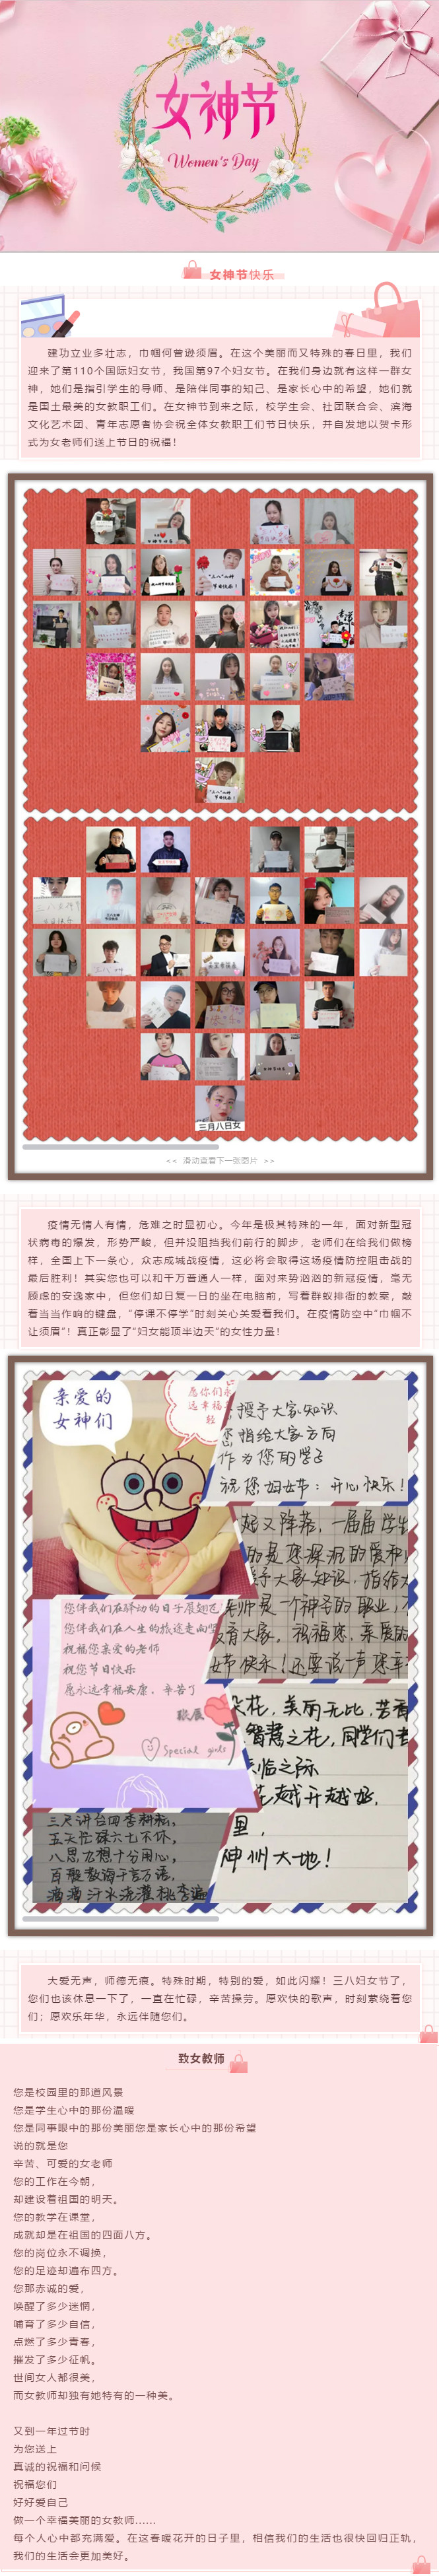 女神节
Women's Day
女神节快乐
建功立业多壮志，巾帼何曾逊须眉。在这个美丽而又特殊的春日里，我们
迎来了第110个国际妇女节，我国第97个妇女节。在我们身边就有这样一群女
神，她们是指引学生的导师、是陪伴同事的知己、是家长心中的希望，她们就
是国土最美的女教职工们。在女神节到来之际，校学生会、社团联合会、滨海
文化艺术团、青年志愿者协会祝全体女教职工们节日快乐，并自发地以贺卡形
式为女老师们送上节日的祝福！
三月八日女
<< 滑动查看下一张图片 >>
疫情无情人有情，危难之时显初心。今年是极其特殊的一年，面对新型冠
状病毒的爆发，形势严峻，但并没阻挡我们前行的脚步，老师们在给我们做榜
样，全国上下一条心，众志成城战疫情，这必将会取得这场疫情防控阻击战的
最后胜利！其实您也可以和千万普通人一样，面对来势汹汹的新冠疫情，毫无
顾虑的安逸家中，但您们却日复一日的坐在电脑前，写着群蚁排衙的教案，敲
着当当作响的键盘，“停课不停学”时刻关心关爱着我们。在疫情防空中“巾帼不
让须眉”！真正彰显了“妇女能顶半边天”的女性力量！
亲爱的
女神们
愿你们永
远幸福
授予大家知识
指给大家方向
作为您的学子
祝您妇女节：开心快乐！
您伴我们在驿动的日子展翅
您伴我们在人生的旅途走向
祝福您亲爱的老师
祝您节日快乐
愿永远幸福安康，辛苦了
Special girls
花，美丽无比，苦
智慧之花，同学们
临之际
越开越好，
里，
神州大地！
三尺讲台四季耕耘，
五天忙碌六七不休，
八思九想十分用心，
百般教诲千言万语，
滴滴汗水浇灌桃李遍
大爱无声，师德无痕。特殊时期，特别的爱，如此闪耀！三八妇女节了，
您们也该休息一下了，一直在忙碌，辛苦操劳。愿欢快的歌声，时刻萦绕着您
们；愿欢乐年华，永远伴随您们。
致女教师
您是校园里的那道风景
您是学生心中的那份温暖
您是同事眼中的那份美丽您是家长心中的那份希望
说的就是您
辛苦、可爱的女老师
您的工作在今朝，
却建设着祖国的明天。
您的教学在课堂，
成就却是在祖国的四面八方。
您的岗位永不调换，
您的足迹却遍布四方。
您那赤诚的爱，
唤醒了多少迷惘，
哺育了多少自信，
点燃了多少青春，
摧发了多少征帆。
世间女人都很美，
而女教师却独有她特有的一种美。
又到一年过节时
为您送上
真诚的祝福和问候
祝福您们
好好爱自己
做一个幸福美丽的女教师……
每个人心中都充满爱。在这春暖花开的日子里，相信我们的生活也很快回归正轨，
我们的生活会更加美好。